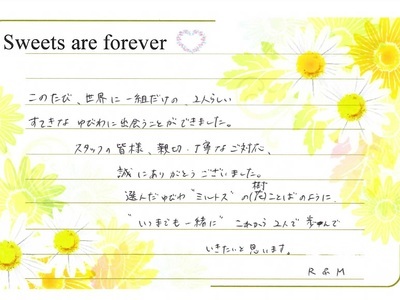 Sweets are forever
このたび、世界に一組だけの、2人らしい
すてきなゆびわに出会うことができました。
スタッフの皆様、親切・丁寧なご対応、
誠にありがとうございました。
樹
選んだゆびわ"ミルトス"の(花)ことばのように
"いつまでも一緒に"これから2人で歩んで
いきたいと思います。
R & M